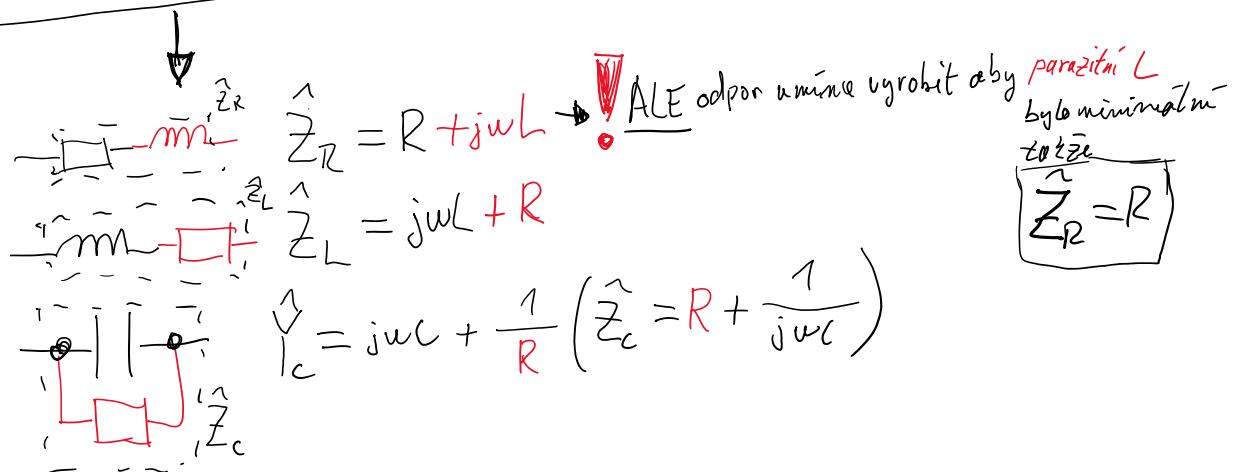 Ẑ_R
Ẑ_R = R + jωL → ! ALE odpor umíme vyrobit aby parazitní L
bylo minimální
takže
Ẑ_R = R
Ẑ_L
Ẑ_L = jωL + R
Ŷ_C = jωC + 1/R (Ẑ_C = R + 1/jωC)
Ẑ_C